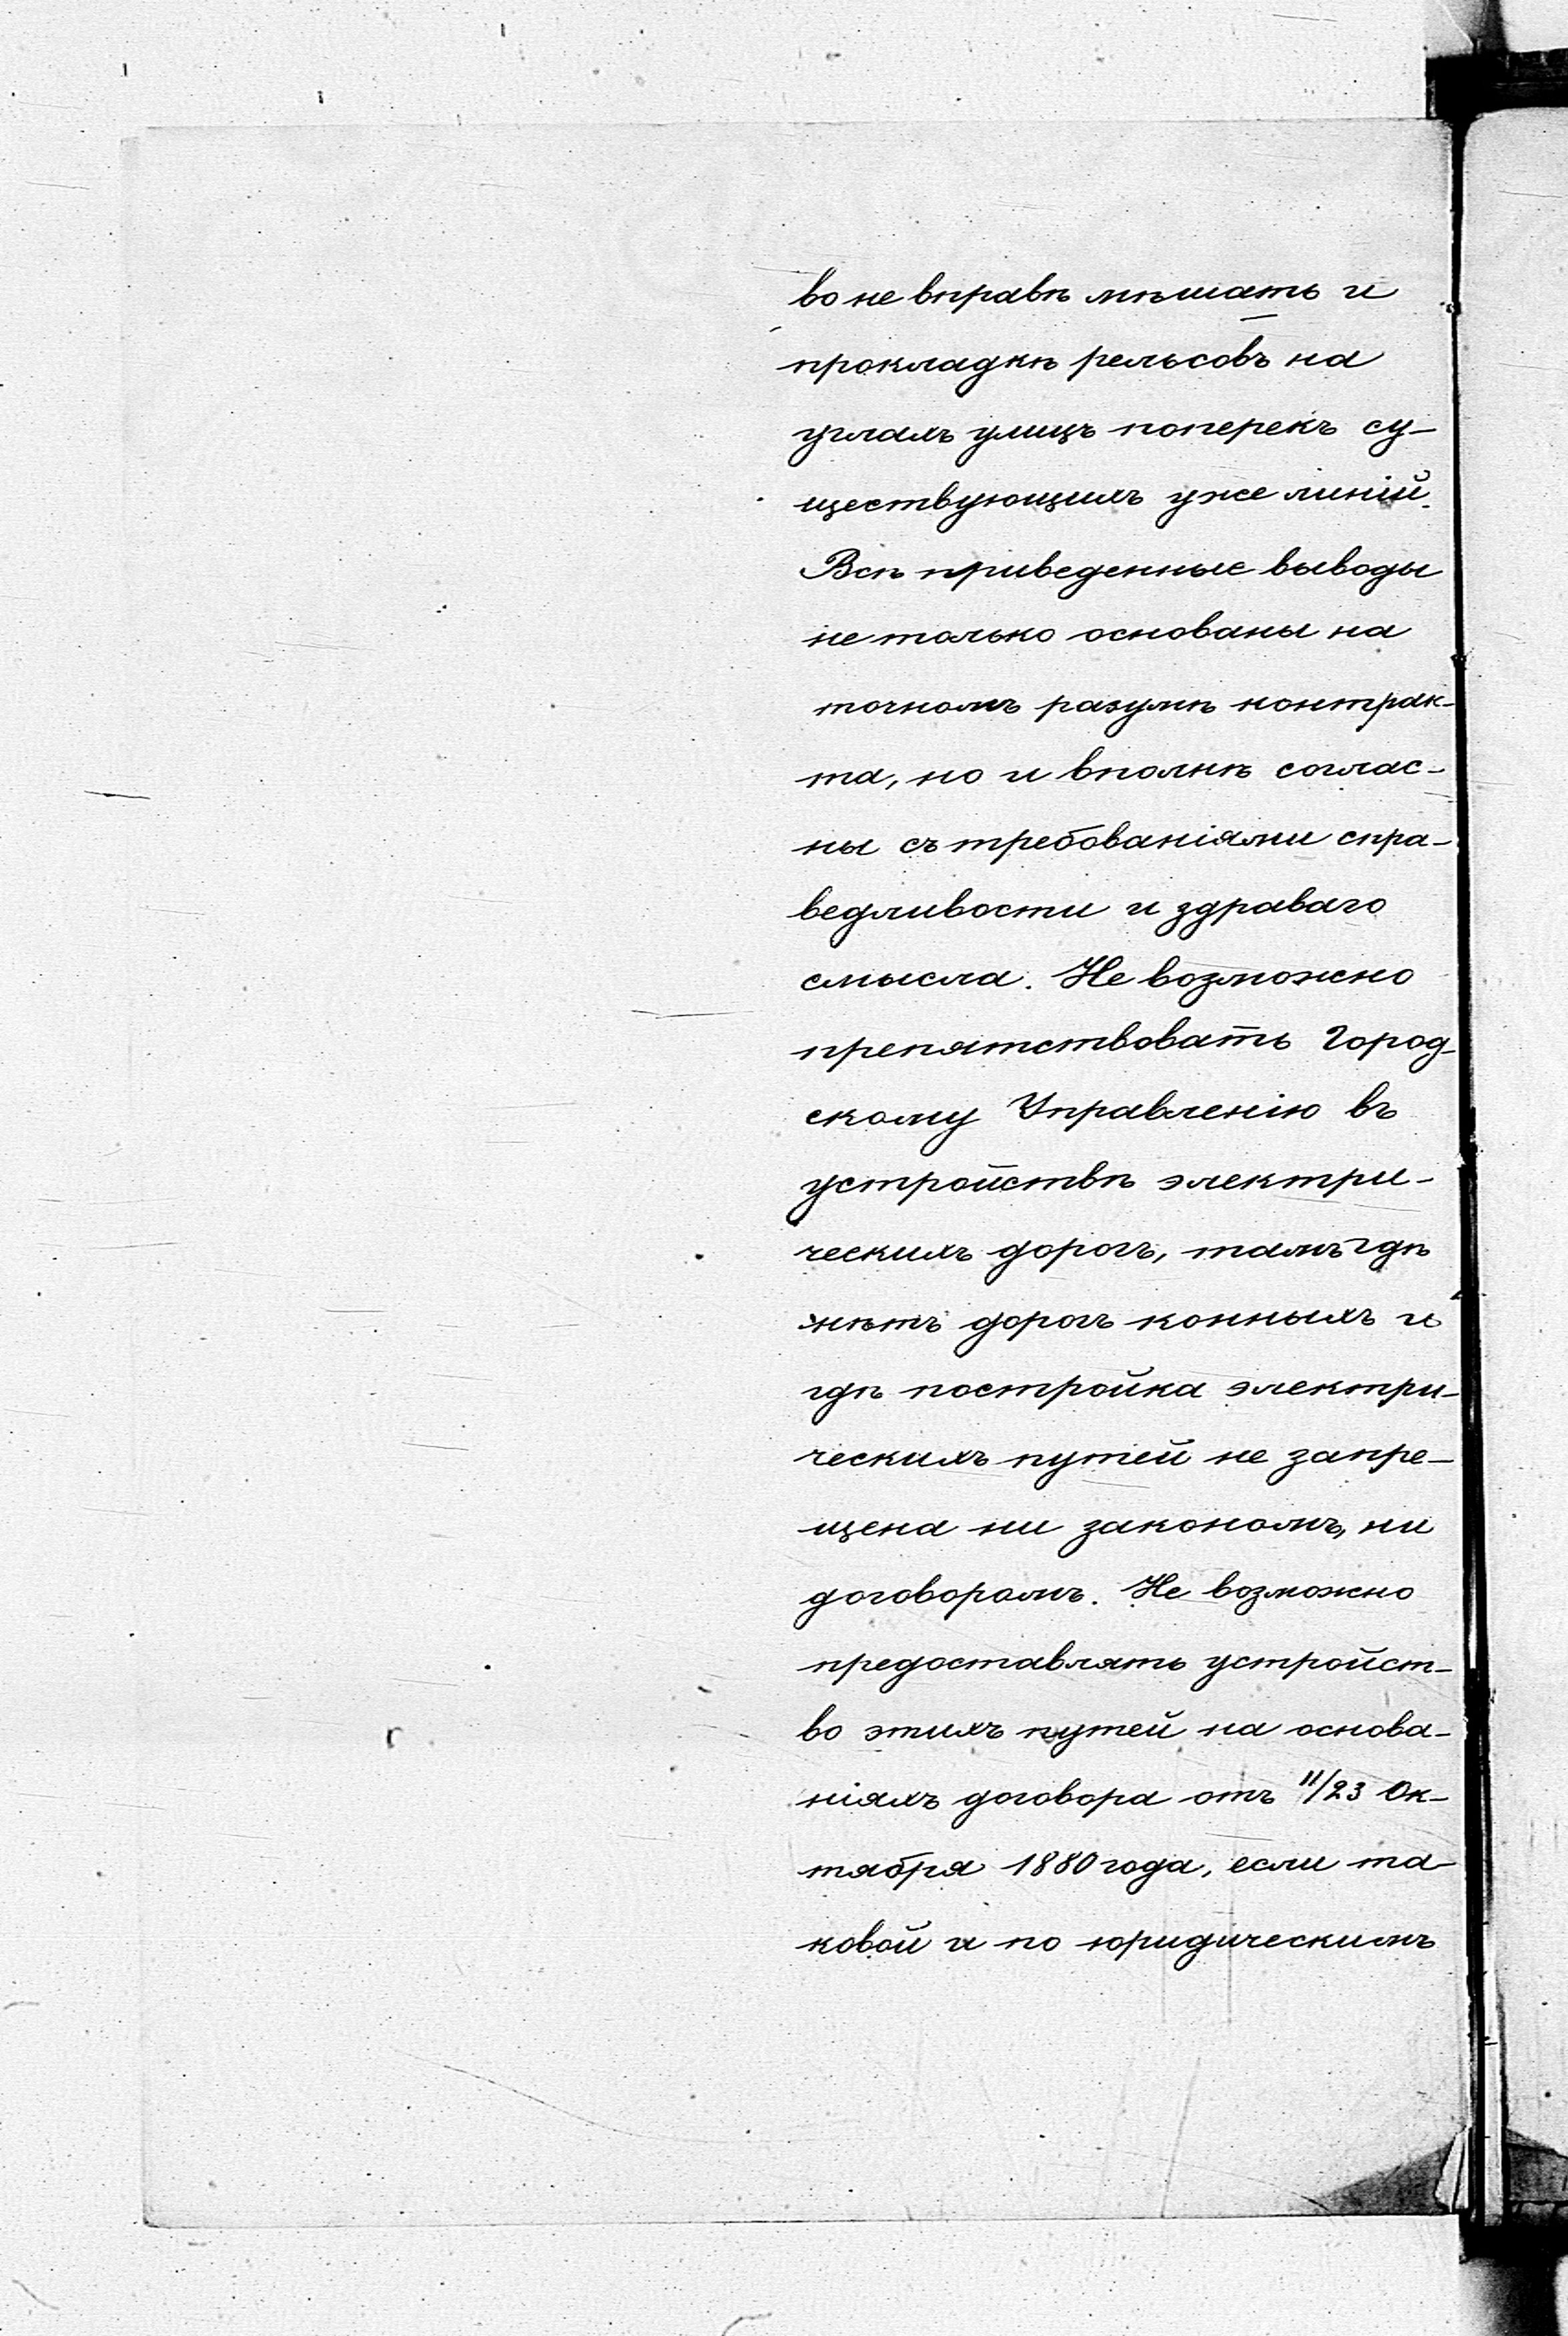 во не вправѣ мѣшать и
прокладкѣ рельсовъ на
углахъ улицъ поперекъ су-
ществующихъ уже линій.
Всѣ приведенные выводы
не только основаны на
точномъ разумѣ контрак-
та, но и вполнѣ соглас-
ны съ требованіями спра-
ведливости и здраваго
смысла. Не возможно
препятствовать Город-
скому Управленію въ
устройствѣ электри-
ческихъ дорогъ, тамъ гдѣ
нѣтъ дорогъ конныхъ и
гдѣ постройка электри-
ческихъ путей не запре-
щена ни закономъ, ни
договоромъ. Не возможно
предоставлять устройст-
во этихъ путей на основа-
ніяхъ договора отъ 11/23 Ок-
тября 1880 года, если та-
ковой и по юридическимъ